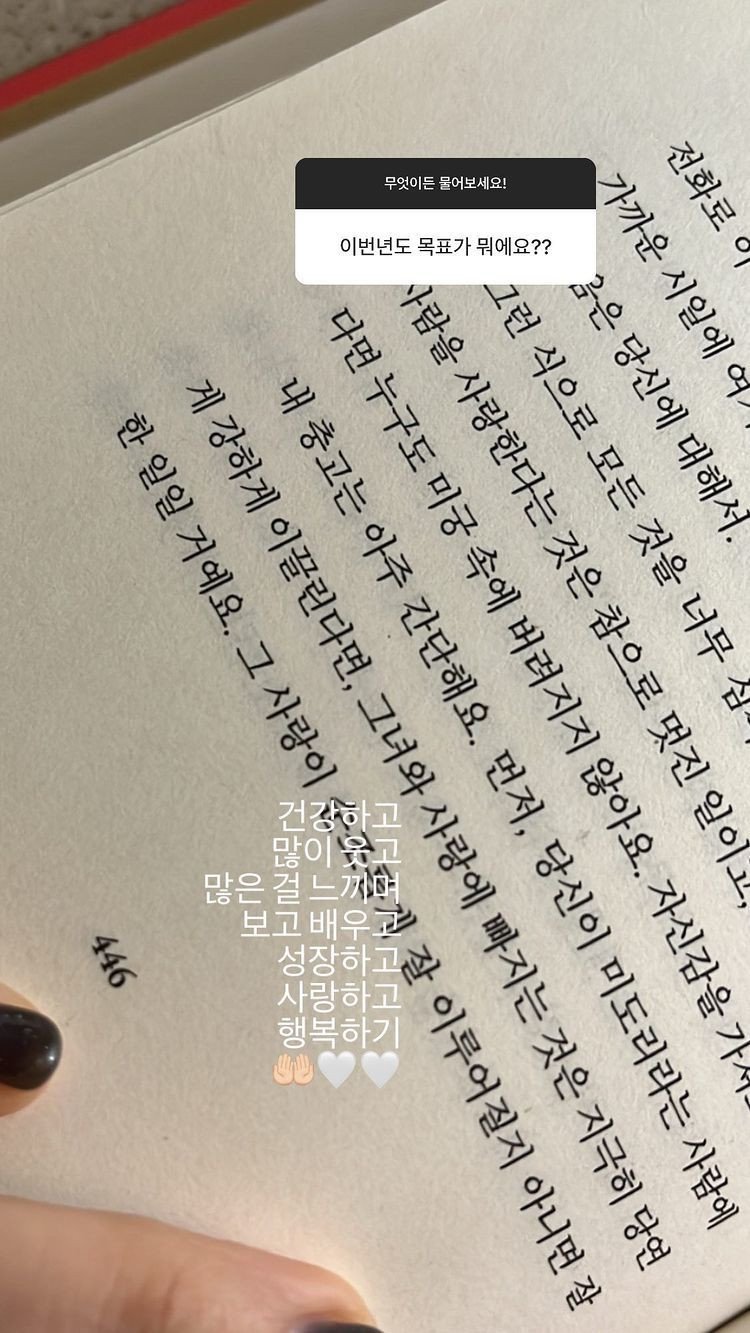 무엇이든 물어보세요!
이번년도 목표가 뭐에요??
전화로
가까운 시일에 여기
음은 당신에 대해서.
그런 식으로 모든 것을 너무
사람을 사랑한다는 것은 참으로 멋진 일이고,
다면 누구도 미궁 속에 버려지지 않아요. 자신감을
내 충고는 아주 간단해요. 먼저, 당신이 미도리라는 사람에
게 강하게 이끌린다면, 그녀와 사랑에 빠지는 것은 지극히 당연
한 일일 거예요. 그 사랑이 잘 이루어질지 아니면 잘
446
건강하고
많이 웃고
많은 걸 느끼며
보고 배우고
성장하고
사랑하고
행복하기
🤲🏻🤍🤍